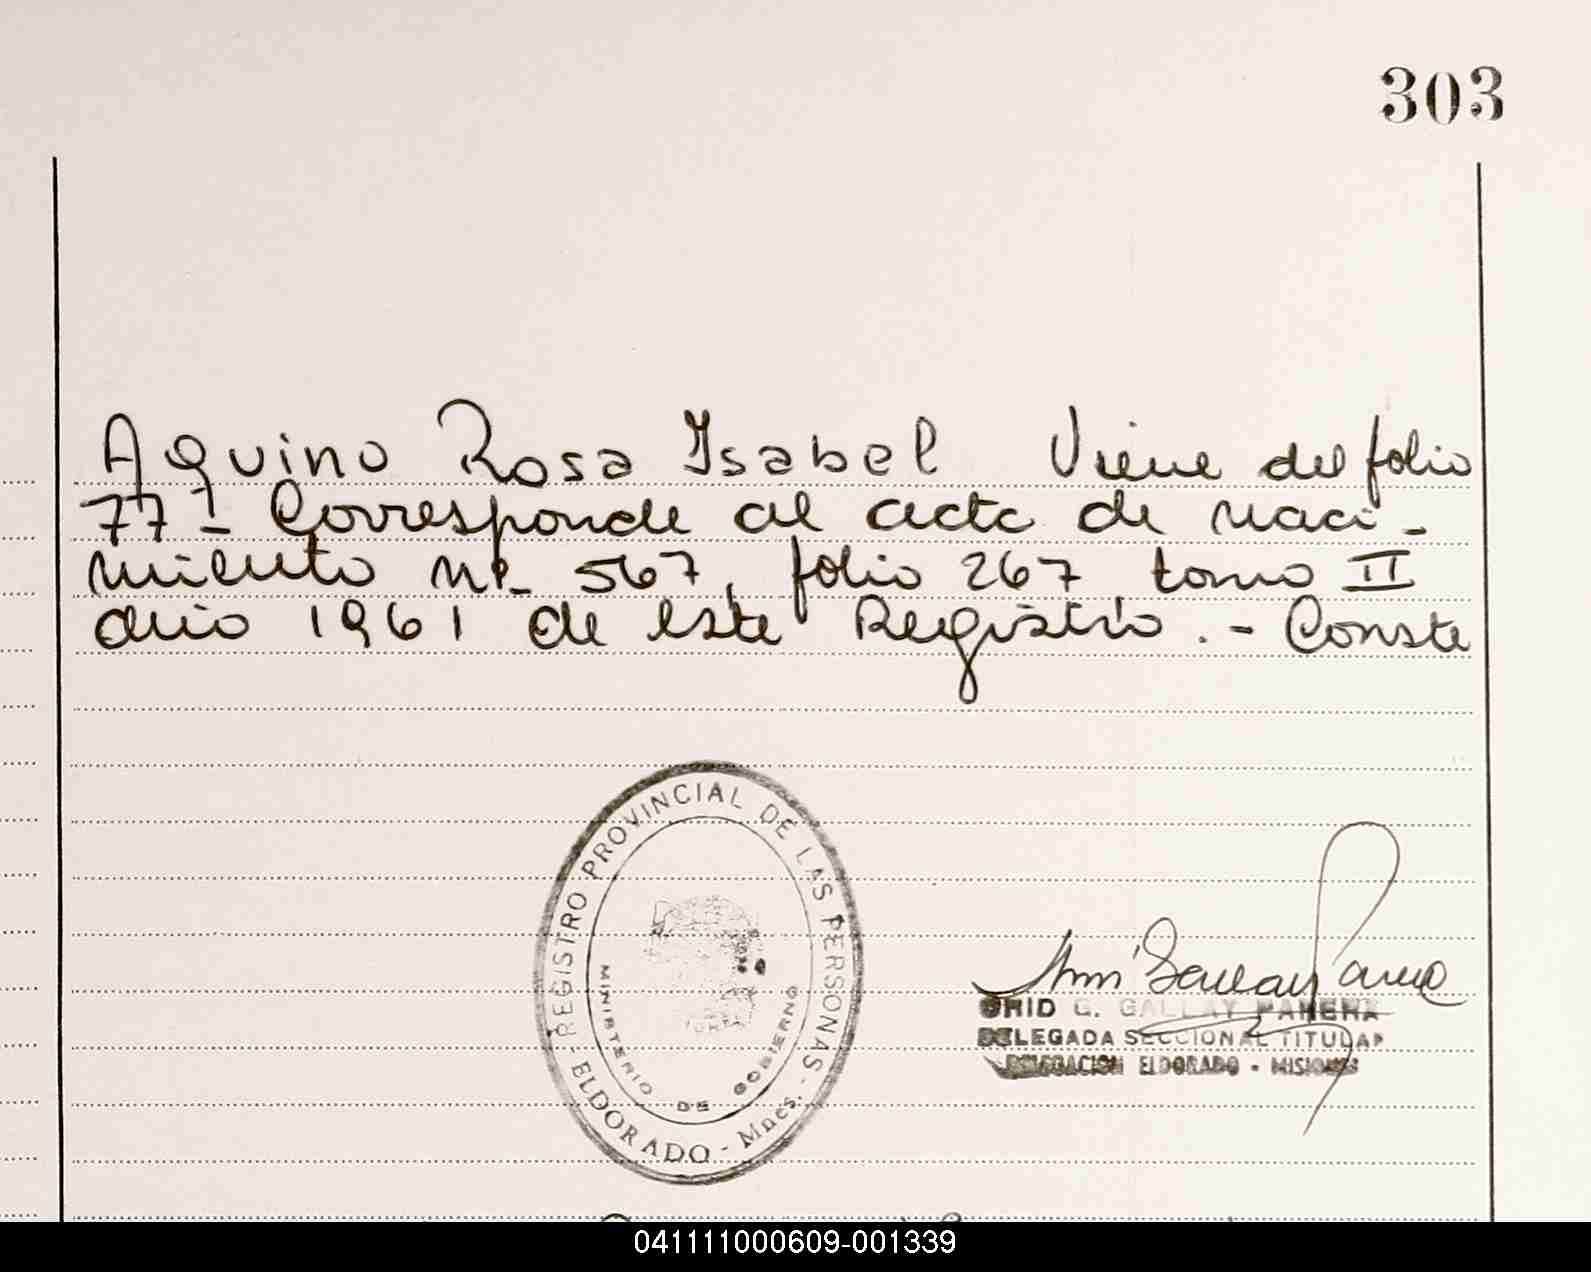 303
Aquino Rosa Isabel Viene del folio
77 - Corresponde al acta de naci-
miento No. 567, folio 267 tomo II
año 1961 de este Registro. - Conste
REGISTRO PROVINCIAL DE LAS PERSONAS
MINISTERIO DE GOBIERNO
- ELDORADO - Mnes. -
G. GALLAY
DELEGADA SECCIONAL TITULAR
DELEGACION ELDORADO - MISIONES
041111000609-001339